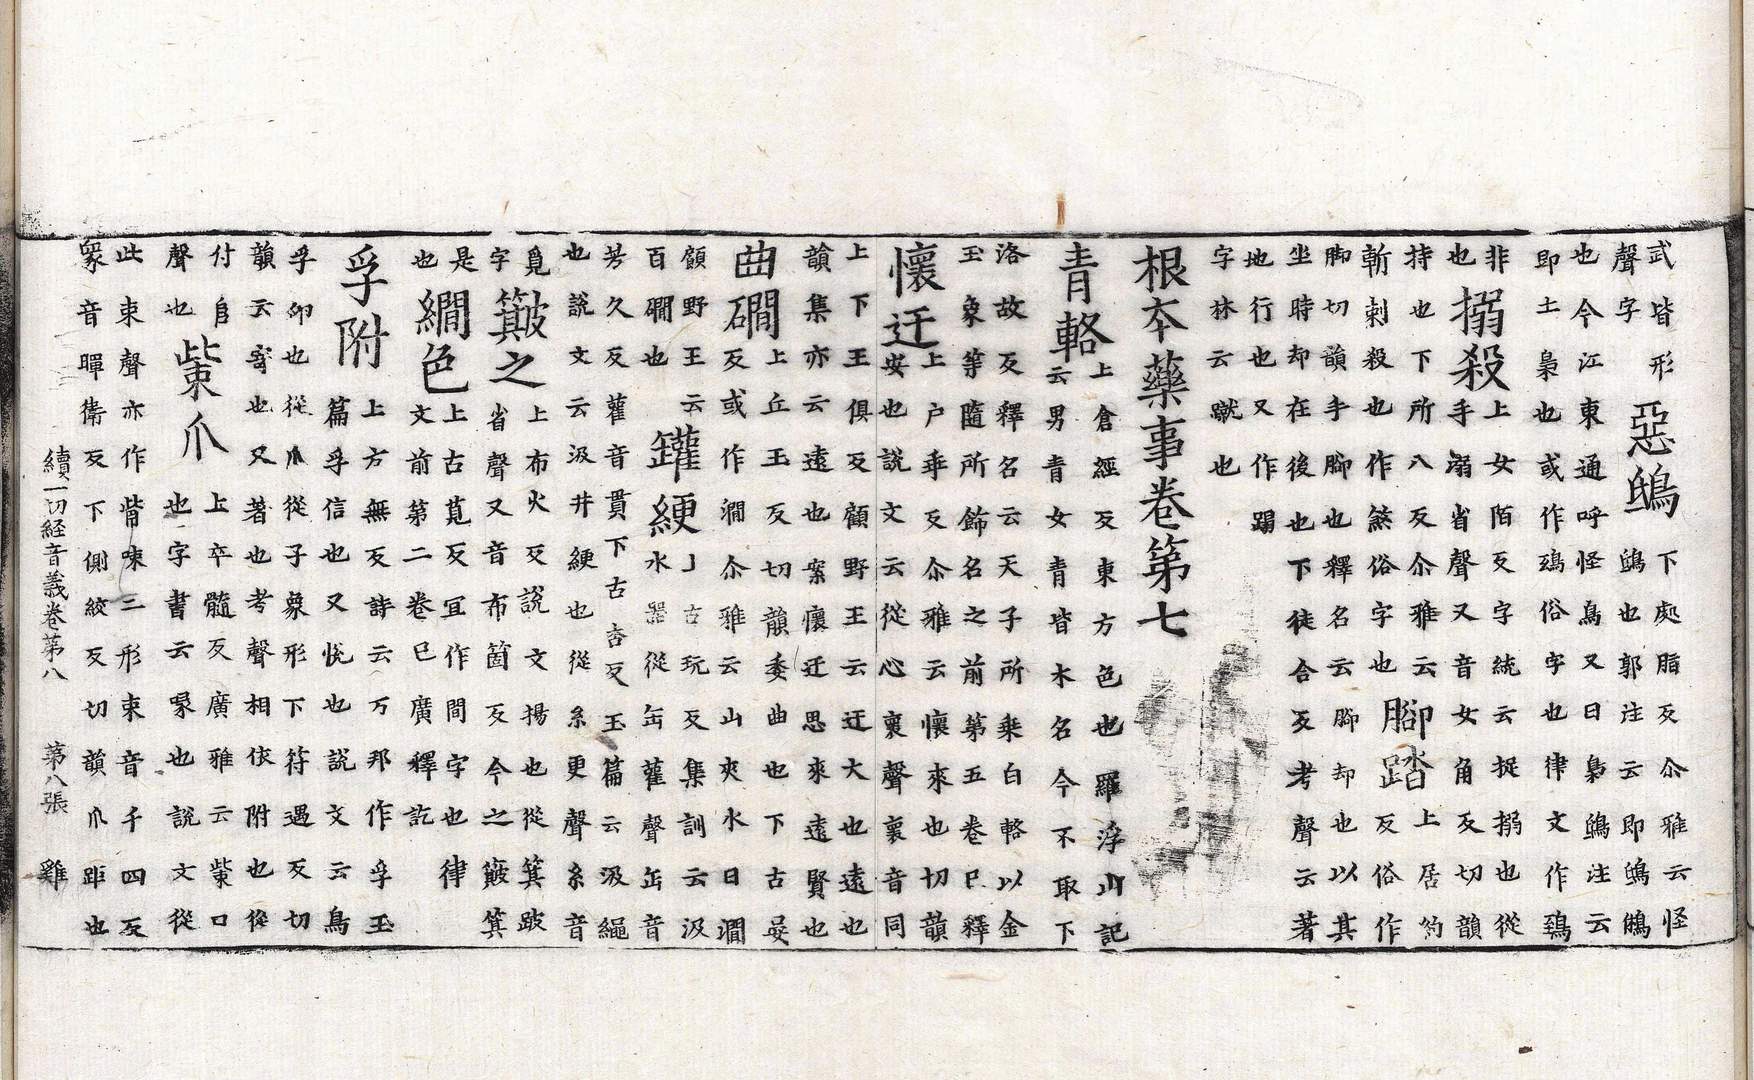 武皆形
聲字
惡鴟
下處脂反尒雅云怪
鴟也郭注云即鴟鵂
也今江東通呼怪鳥又曰梟鴟注云
即土梟也或作鵶俗字也律文作鵄
非
也
搦殺
上女陌反字統云捉搦也從
手溺省聲又音女角反切韻
持也下所八反尒雅云
斬刺殺也作煞俗字也
腳踏
上居約
反俗作
脚切韻手腳也釋名云腳却也以其
坐時却在後也下徒合反考聲云著
地行也又作蹋
字林云蹴也
根本藥事卷第七
青輅
上倉經反東方色也羅浮山記
云男青女青皆木名今不取下
洛故反釋名云天子所乘白輅以金
玉象等隨所飾名之前第五卷已釋
懷迂
上戶乖反尒雅云懷來也切韻
安也說文云從心褱聲褱音同
上下王俱反顧野王云迂大也遠也
韻集亦云遠也案懷迂思來遠賢也
曲磵
上丘玉反切韻委曲也下古晏
反或作澗尒雅云山夾水曰澗
顧野王云
百磵也
罐綆
上古玩反集訓云汲
水器從缶雚聲缶音
芳久反雚音貫下古杏反玉篇云汲繩
也說文云汲井綆也從糸更聲糸音
覓
字
簸之
上布火反說文揚也從箕皷
省聲又音布箇反今之簸箕
是
也
繝色
上古莧反冝作間字也律
文前第二卷已廣釋訖
孚附
上方無反詩云万邦作孚玉
篇孚信也又悅也說文云鳥
孚卵也從爪從子象形下符遇反切
韻云寄也又著也考聲相依附也從
付𨸏
聲也
㭰爪
上卒髓反廣雅云㭰口
也字書云喙也說文從
此束聲亦作觜㖩三形束音千四反
喙音暉衛反下側絞反切韻爪距也
續一切経音義卷第八 第八張 雞